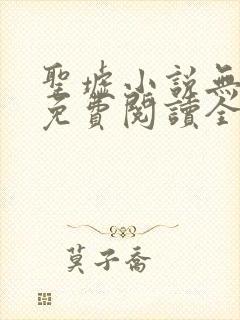 聖墟小說無
免費閱讀全
莫子喬